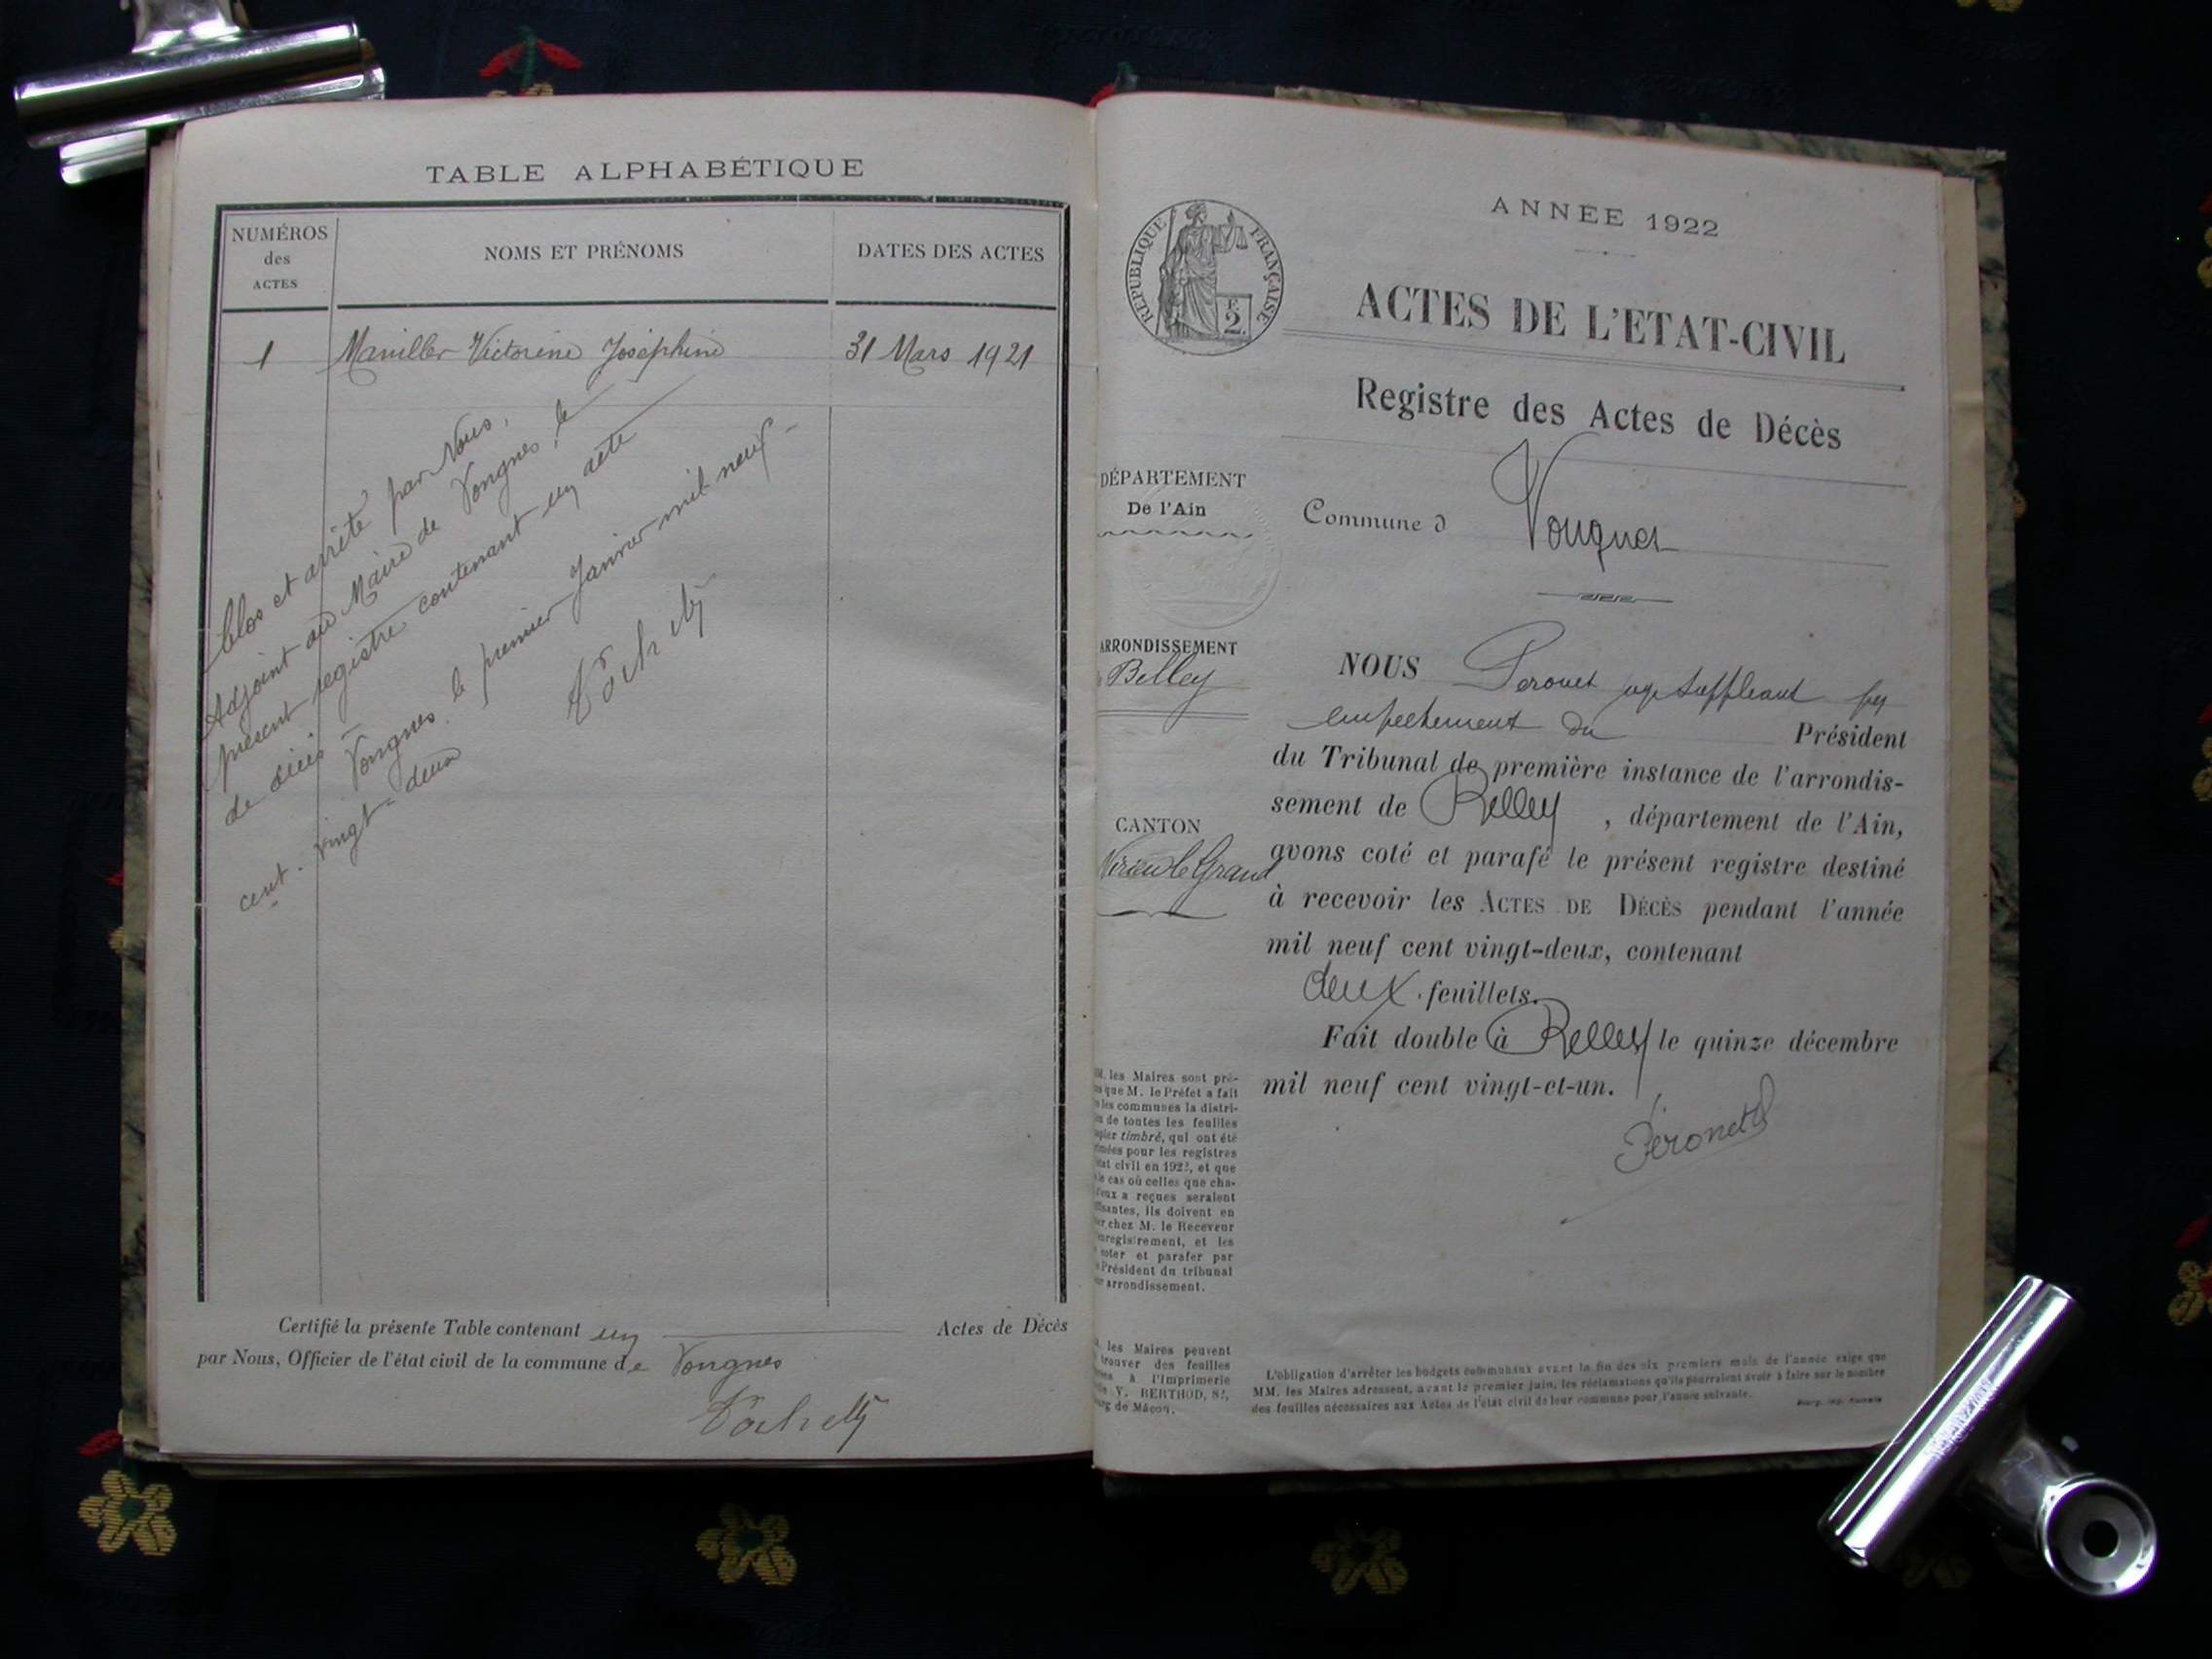 TABLE ALPHABÉTIQUE
NUMÉROS
des
ACTES
NOMS ET PRÉNOMS
DATES DES ACTES
1 Maniller Victorine Joséphine 31 Mars 1921
Clos et arrêté par Nous,
Adjoint au Maire de Vongnes, le
présent registre contenant un acte
de décès
Vongnes le premier Janvier mil neuf
cent-vingt-deux
Certifié la présente Table contenant un Actes de Décès
par Nous, Officier de l'état civil de la commune de Vongnes
ANNÉE 1922
RÉPUBLIQUE FRANÇAISE
2
ACTES DE L'ETAT-CIVIL
Registre des Actes de Décès
DÉPARTEMENT
De l'Ain
Commune d Vongnes
ARRONDISSEMENT
Belley
NOUS Peronet juge suppléant par
empechement du Président
du Tribunal de première instance de l'arrondis-
sement de Belley, département de l'Ain,
CANTON
Virieu le Grand
avons coté et parafé le présent registre destiné
à recevoir les ACTES DE DÉCÈS pendant l'année
mil neuf cent vingt-deux, contenant
deux feuillets.
Fait double à Belley le quinze décembre
mil neuf cent vingt-et-un.
Peronet
MM. les Maires sont pré-
que M. le Préfet a fait
les communes la distri-
de toutes les feuilles
timbré, qui ont été
pour les registres
civil en 1922, et que
le cas où celles que cha-
a reçues seraient
ils doivent en
chez M. le Receveur
et les
coter et parafer par
Président du tribunal
arrondissement.
les Maires peuvent
trouver des feuilles
à l'Imprimerie
V. BERTHOD, 82,
de Mâcon.
L'obligation d'arrêter les budgets communaux avant la fin des six premiers mois de l'année exige que
MM. les Maires adressent, avant le premier juin, les réclamations qu'ils pourraient avoir à faire sur le nombre
des feuilles nécessaires aux Actes de l'état civil de leur commune pour l'année suivante.